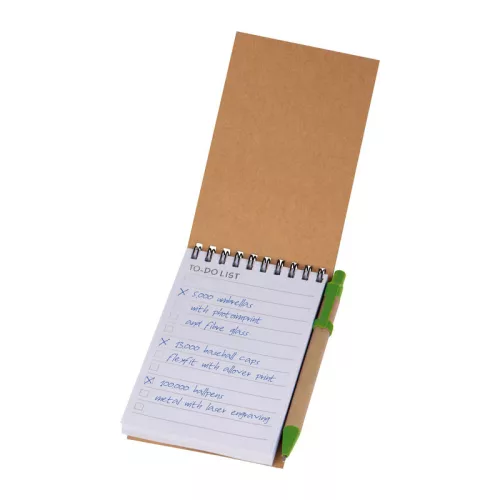 TO-DO LIST
5,000 umbrellas
with photoinprint
and fibre glass
15,000 baseball caps
flexfit with allover print
100.000 ballpens
metal with laser engraving